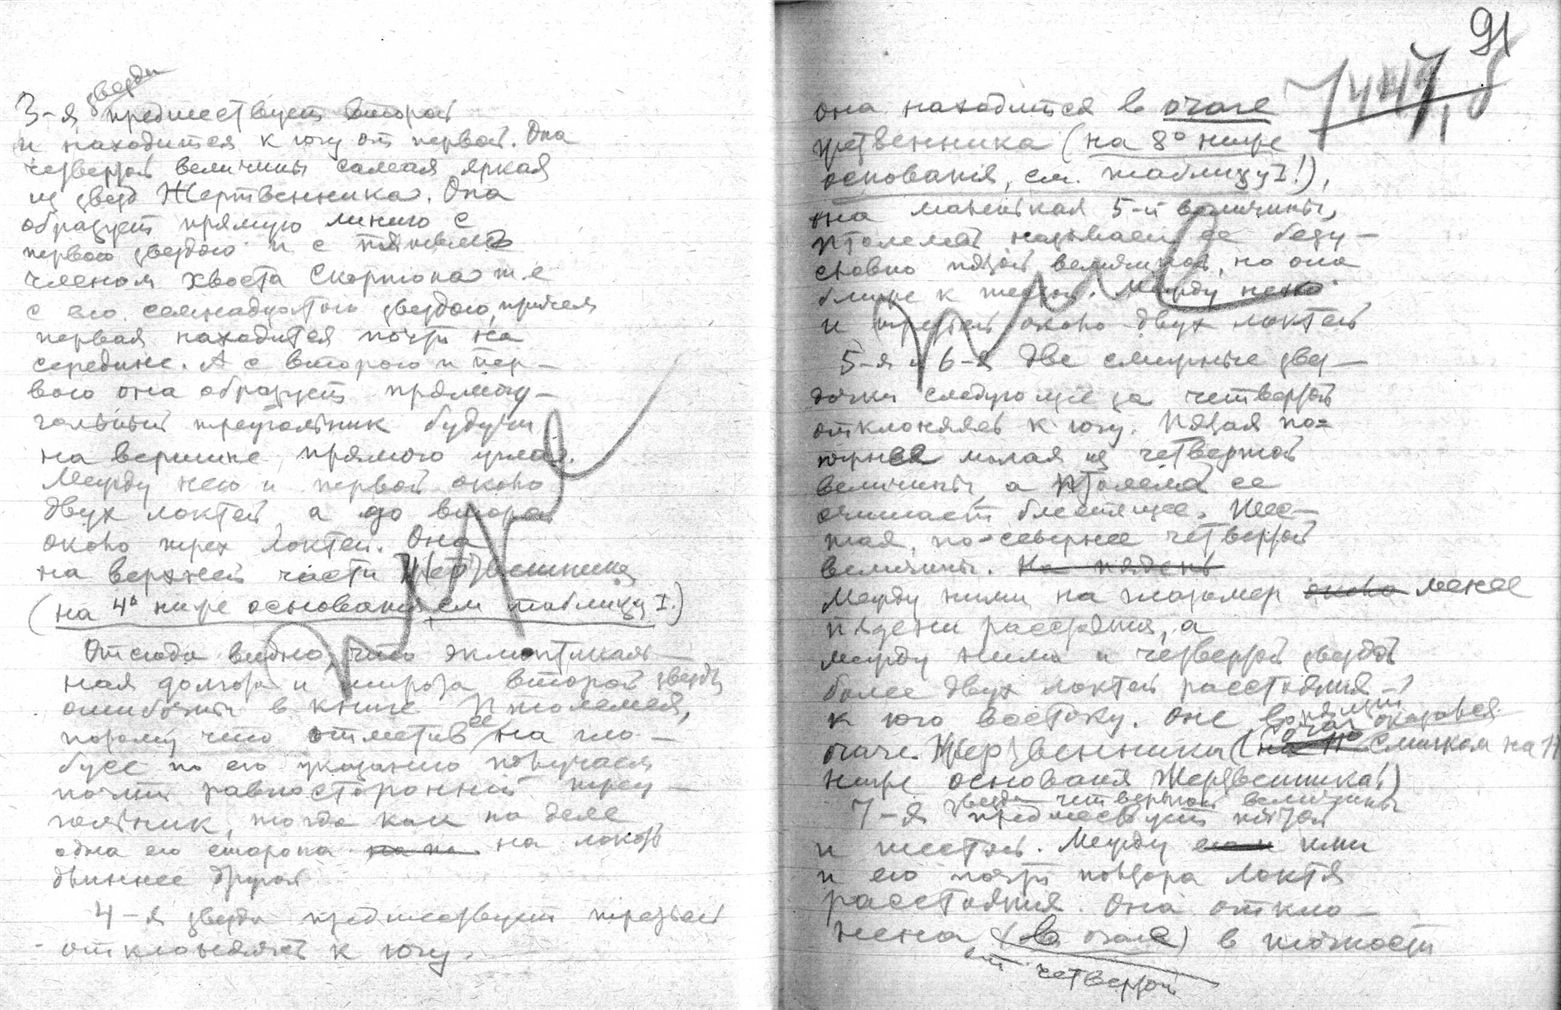 звезда
3-я предшествует второй
и находится к югу от первой. Она
четвертой величины самая яркая
из звезд Жертвенника. Она
образует прямую линию с
первою звездою и с пятым
членом хвоста Скорпиона т.е
с его семнадцатою звездою, причем
первая находится почти на
середине. А с второю и пер-
вою она образует прямоу-
гольный треугольник будучи
на вершине прямого угла.
Между нею и первой около
двух локтей, а до второй
около трех локтей. Она
на верхней части Жертвенника
(на 4° ниже основания см таблицу I.)
Отсюда видно, что эклиптикаль-
ная долгота и широта второй звезды
ошибочны в книге Птолемея,
потому что отметив ее на гло-
бусе по его указанию получаем
почти равносторонний треу-
гольник, тогда как на деле
одна его сторона на локоть
длиннее другой
4-я звезда предшествует третьей
отклоняясь к югу.
91
7447,8
она находится в очаге
жертвенника (на 8° ниже
основания, см. таблицу I!),
она маленькая 5-й величины,
Птолемей называет ее безу-
словно пятой величины, но она
ближе к шестой. Между нею
и третьей около двух локтей
5-я и 6-я две смирные звез-
дочки следующие за четвертой
отклоняясь к югу. Пятая по-
южнее малая из четвертой
величины, а Птолемей ее
считает блестящее. Шес-
тая, по-севернее четвертой
величины. На пядень
Между ними на глазомер около менее
пядени расстояния, а
между ними и четвертой звездой
более двух локтей расстояния
к юго востоку. Оне в
очаге Жертвенника (на 11° слишком на 11
ниже основания Жертвенника!)
7-я звезда четвертой величины
предшествует пятой
и шестой. Между ими
и ею почти полтора локтя
расстояния. Она откло-
нена (в очаге) в точности
от четвертой